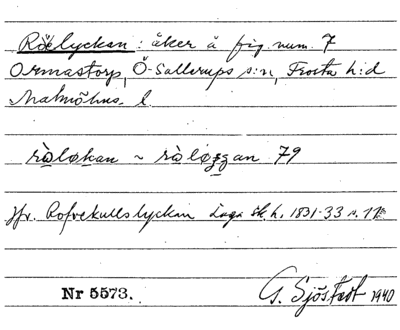 Rölyckan: åker å fig. num. 7
Ormastorp, Ö. Sallerups s:n, Frosta h:d
Malmöhus l.
jfr. Rofvekullslyckan Laga sk. h. 1831-33 n.
Nr 5573.
G. Sjöstedt 1940